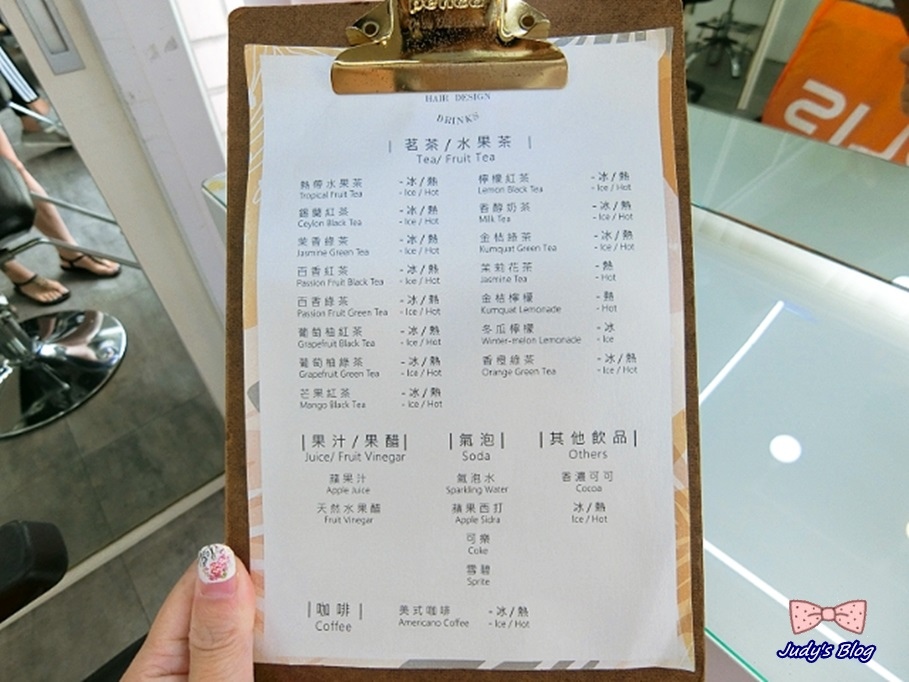 HAIR DESIGN
DRINKS
茗茶/水果茶
Tea/ Fruit Tea
熱帶水果茶 -冰/熱
Tropical Fruit Tea - Ice / Hot
錫蘭紅茶 -冰/熱
Ceylon Black Tea - Ice / Hot
茉香綠茶 -冰/熱
Jasmine Green Tea - Ice / Hot
百香紅茶 -冰/熱
Passion Fruit Black Tea - Ice / Hot
百香綠茶 -冰/熱
Passion Fruit Green Tea - Ice / Hot
葡萄柚紅茶 -冰/熱
Grapefruit Black Tea - Ice / Hot
葡萄柚綠茶 -冰/熱
Grapefruit Green Tea - Ice / Hot
芒果紅茶 -冰/熱
Mango Black Tea - Ice / Hot
檸檬紅茶 -冰/熱
Lemon Black Tea - Ice / Hot
香醇奶茶 -冰/熱
Milk Tea - Ice / Hot
金桔綠茶 -冰/熱
Kumquat Green Tea - Ice / Hot
茉莉花茶 -熱
Jasmine Tea - Hot
金桔檸檬 -熱
Kumquat Lemonade - Hot
冬瓜檸檬 -冰
Winter-melon Lemonade - Ice
香橙綠茶 -冰/熱
Orange Green Tea - Ice / Hot
|果汁/果醋|
Juice/ Fruit Vinegar
蘋果汁
Apple Juice
天然水果醋
Fruit Vinegar
|氣泡|
Soda
氣泡水
Sparkling Water
蘋果西打
Apple Sidra
可樂
Coke
雪碧
Sprite
|其他飲品|
Others
香濃可可
Cocoa
冰/熱
Ice / Hot
|咖啡|
Coffee
美式咖啡 -冰/熱
Americano Coffee - Ice / Hot
Judy's Blog